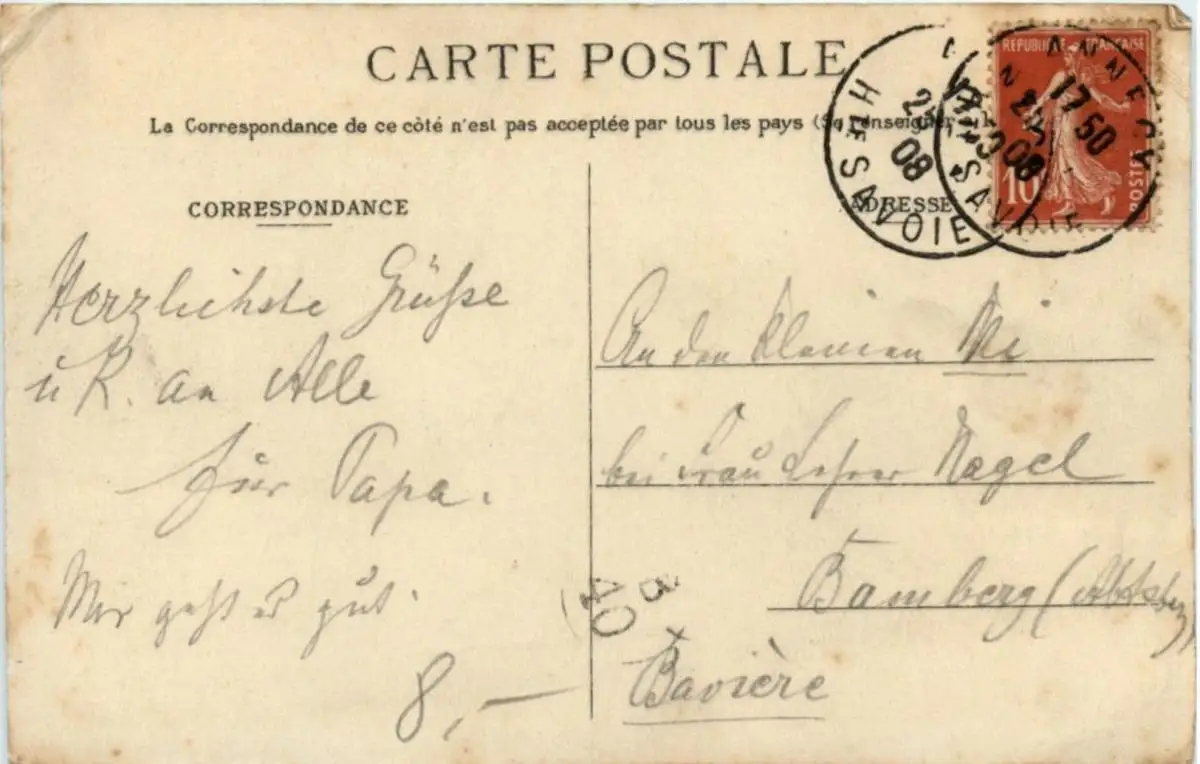 CARTE POSTALE
La Correspondance de ce côté n'est pas acceptée par tous les pays (Se renseigner à la
CORRESPONDANCE
ADRESSE
RÉPUBLIQUE FRANÇAISE
10
POSTES
ANNECY
17 50
08
HTE SAVOIE
08
HTE SAVOIE
Herzlichste Grüße
u K. an Alle
für Papa.
Mir geht es gut.
8,—
An den kleinen
bei Frau Lehrer Nagel
Bamberg
Bavière
3
40